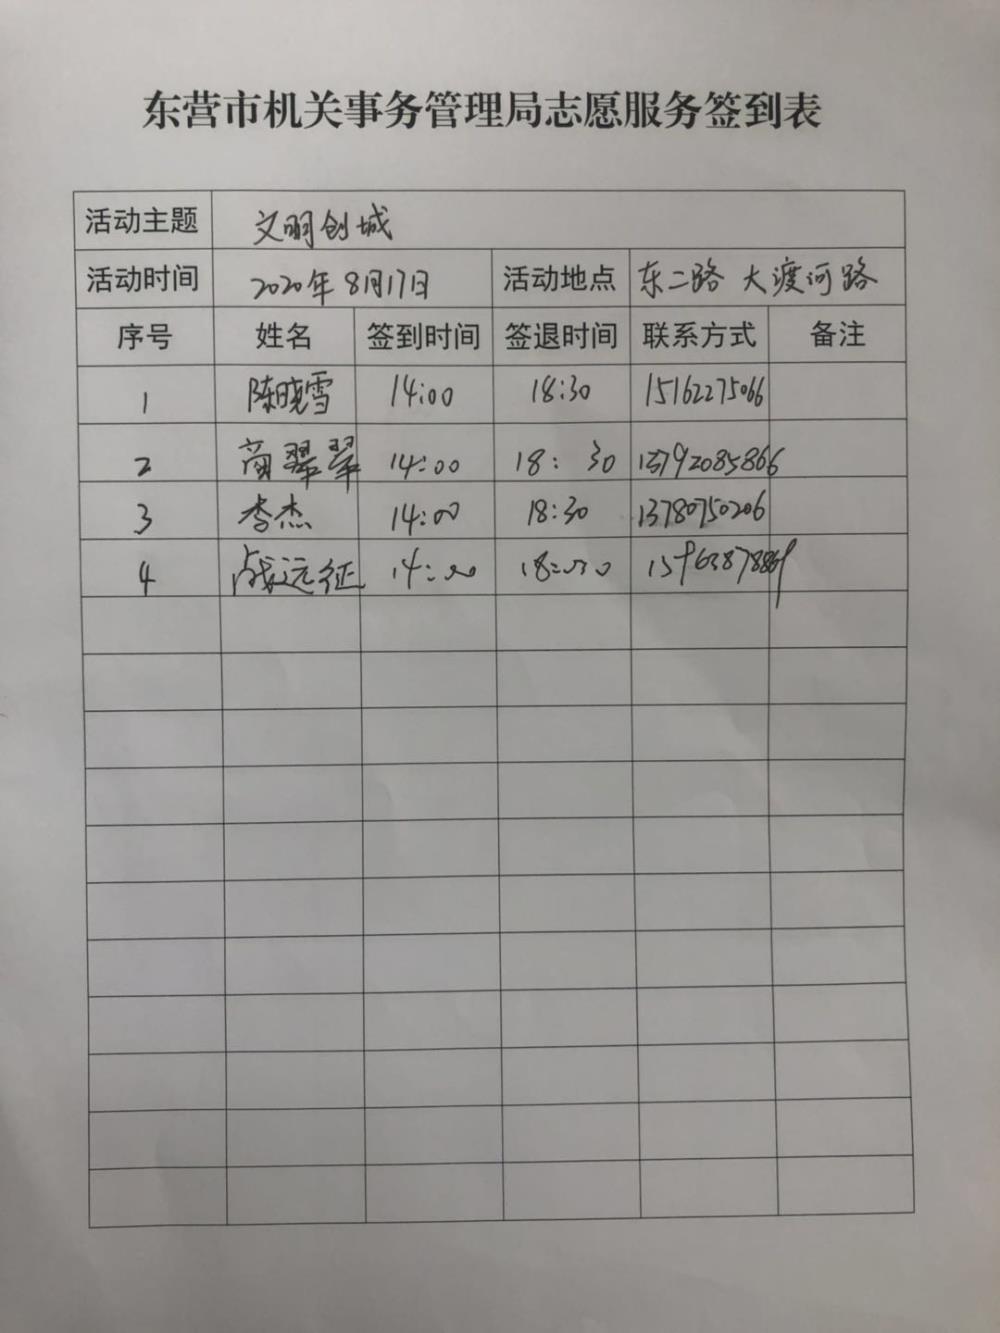 东营市机关事务管理局志愿服务签到表
活动主题 文明创城
活动时间 2020年8月17日 活动地点 东二路 大渡河路
序号 姓名 签到时间 签退时间 联系方式 备注
1 陈晓雪 14:00 18:30 15162275066
2 商翠翠 14:00 18:30 13792085866
3 李杰 14:00 18:30 13780750206
4 战远征 14:00 18:30